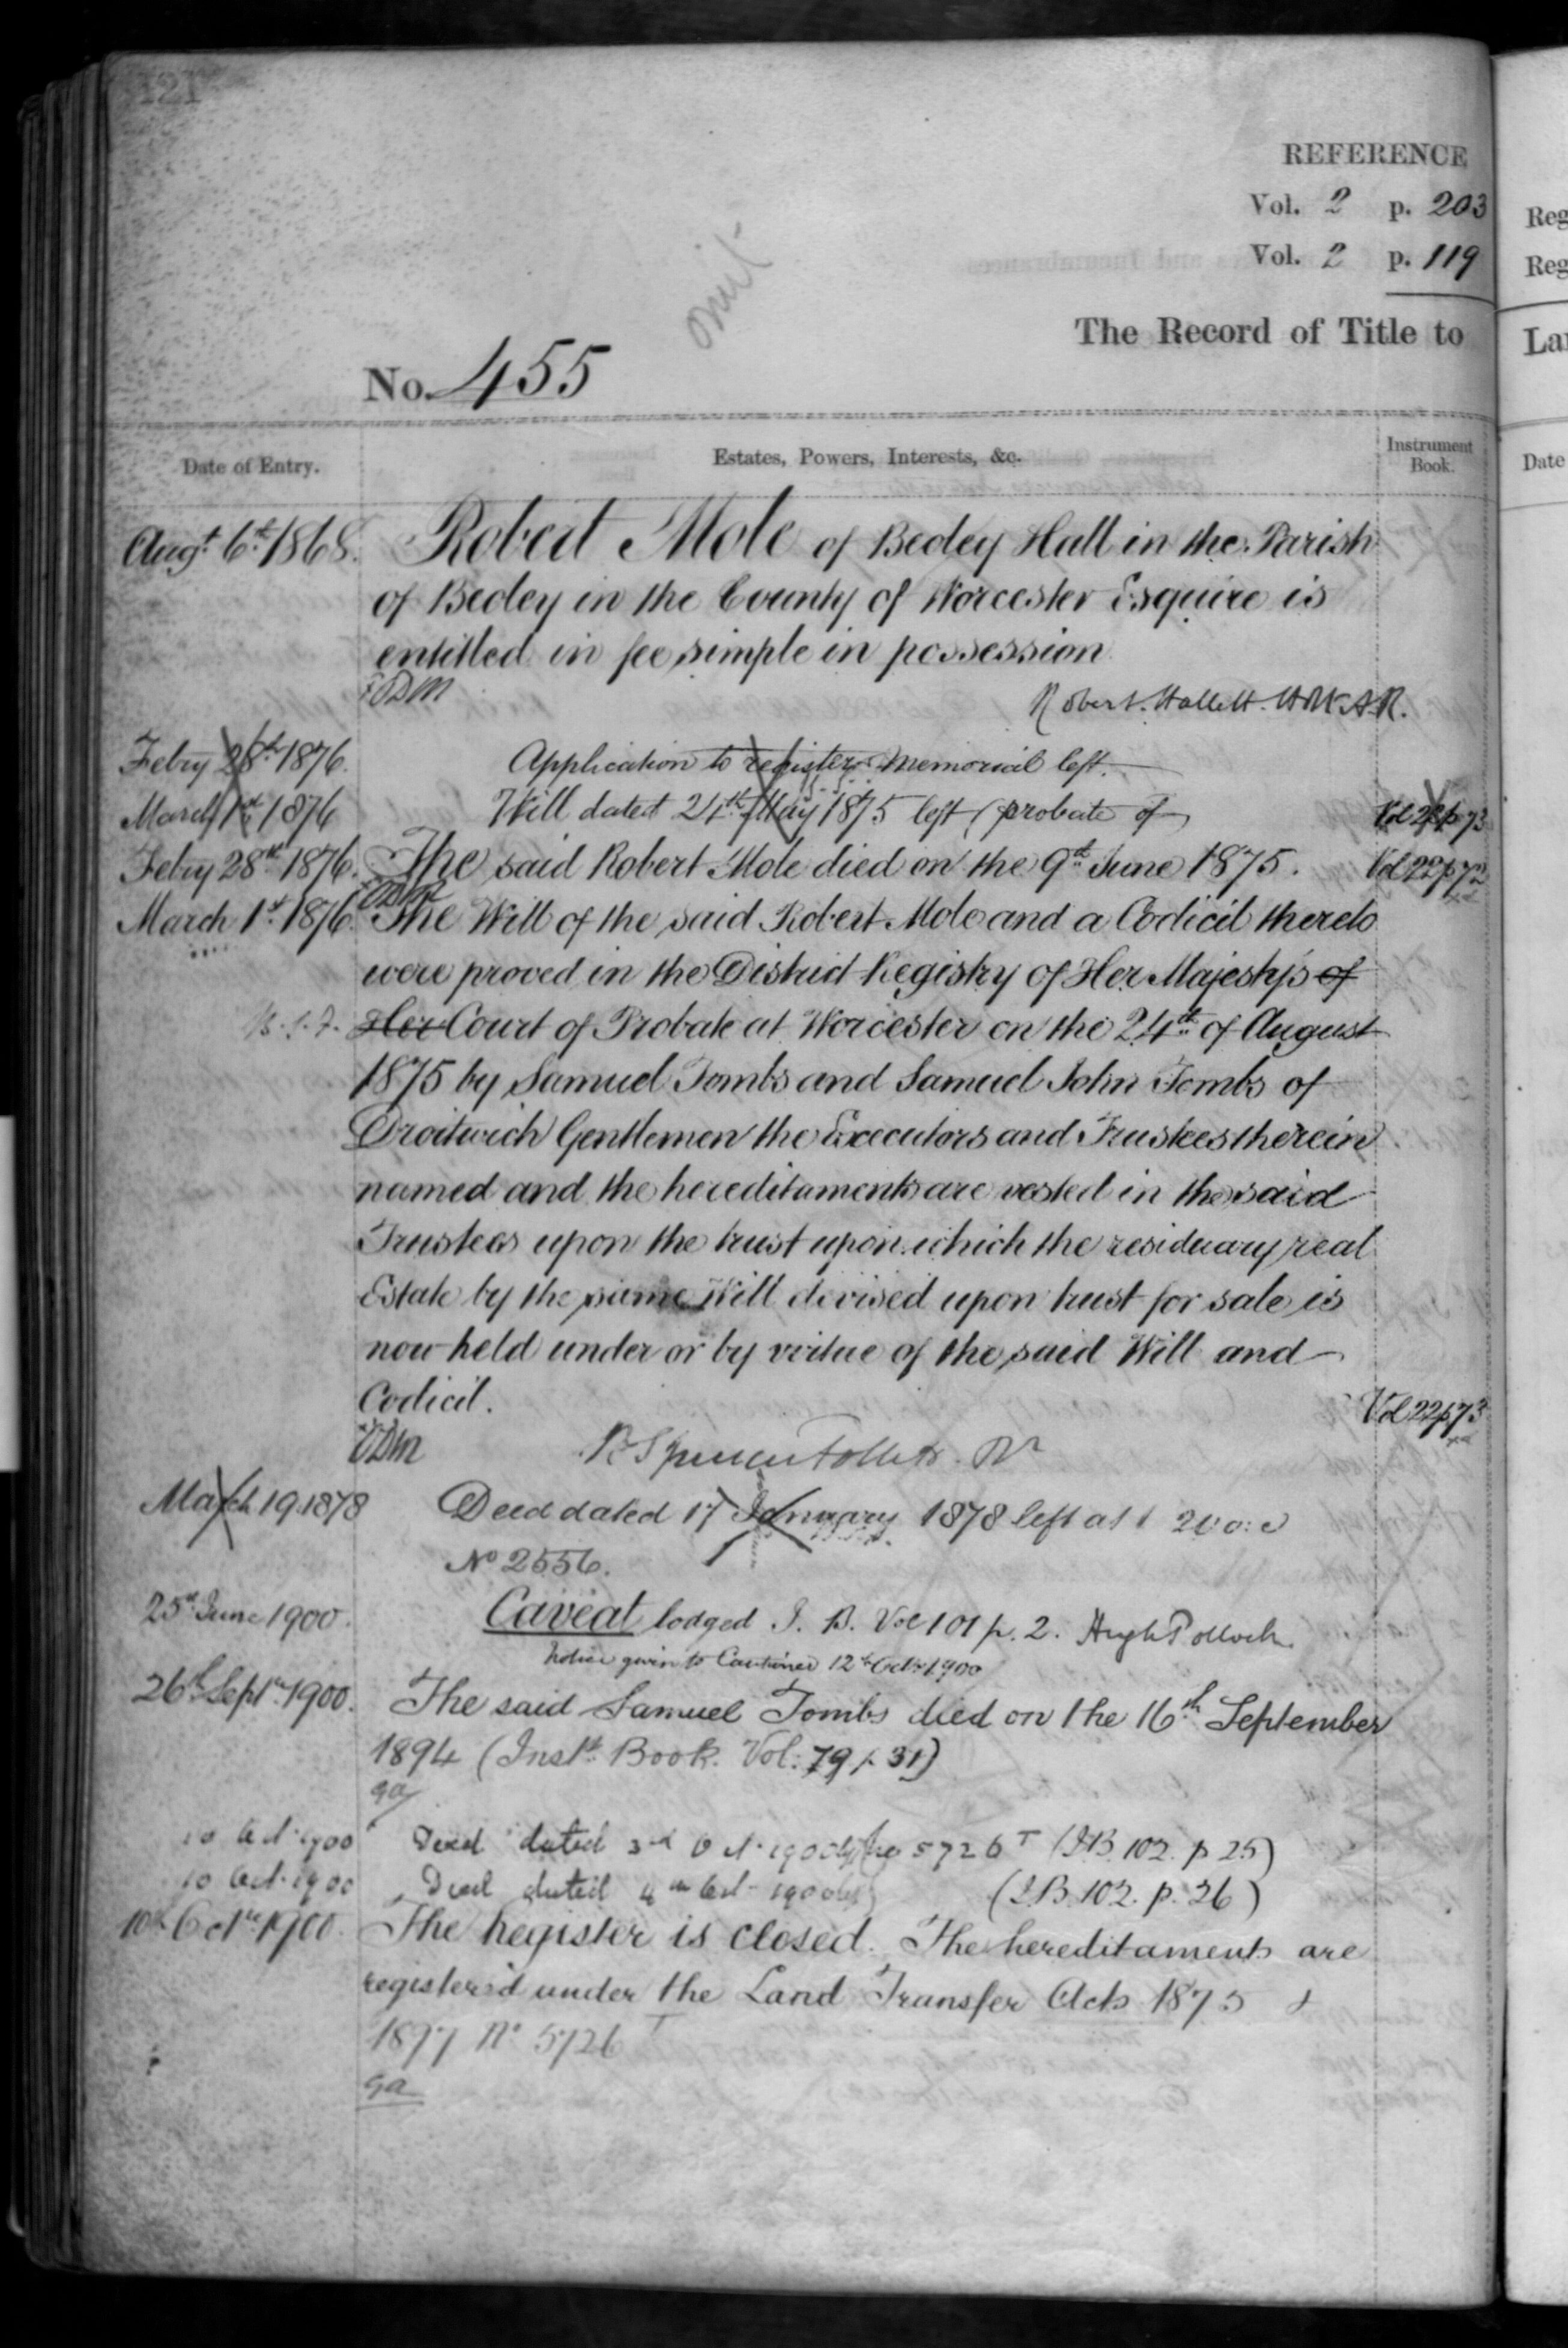 121
REFERENCE
Vol. 2 p. 203
Vol. 2 p. 119
omit
The Record of Title to
No. 455
Date of Entry.
Estates, Powers, Interests, &c.
Instrument Book.
Augt. 6th 1868. Robert Mole of Beoley Hall in the Parish
of Beoley in the County of Worcester Esquire is
entitled in fee simple in possession
Robert Hallett
Febry 28th 1876. Application to register memorial left.
March 1st 1876 Will dated 24th May 1875 left (probate of) Vol 22 p 73
Febry 28th 1876. The said Robert Mole died on the 9th June 1875. Vol 22 p 72
March 1st 1876. The Will of the said Robert Mole and a Codicil thereto
were proved in the District Registry of Her Majesty's of
Her Court of Probate at Worcester on the 24th of August
1875 by Samuel Tombs and Samuel John Tombs of
Droitwich Gentlemen the Executors and Trustees therein
named and the hereditaments are vested in the said
Trustees upon the trust upon which the residuary real
Estate by the same Will devised upon trust for sale is
now held under or by virtue of the said Will and
Codicil. Vol 22 p 73
March 19 1878 Deed dated 17 January 1878 left at 1
No 2556.
25th June 1900. Caveat lodged I. B. Vol 101 p. 2. Hugh Pollock
Notice given to Cautioner 12th Octr 1900
26th Septr 1900. The said Samuel Tombs died on the 16th September
1894 (Inst. Book. Vol: 79 p 31)
ga
10 Oct. 1900 Deed dated 3rd Oct. 1900 5726 T (I.B. 102. p 25)
10 Oct. 1900 Deed dated 4th Oct 1900 (I.B. 102. p. 26)
10th Octr 1900. The Register is closed. The hereditaments are
registered under the Land Transfer Acts 1875 &
1897 No 5726 T
ga
Reg
Reg
Lan
Date